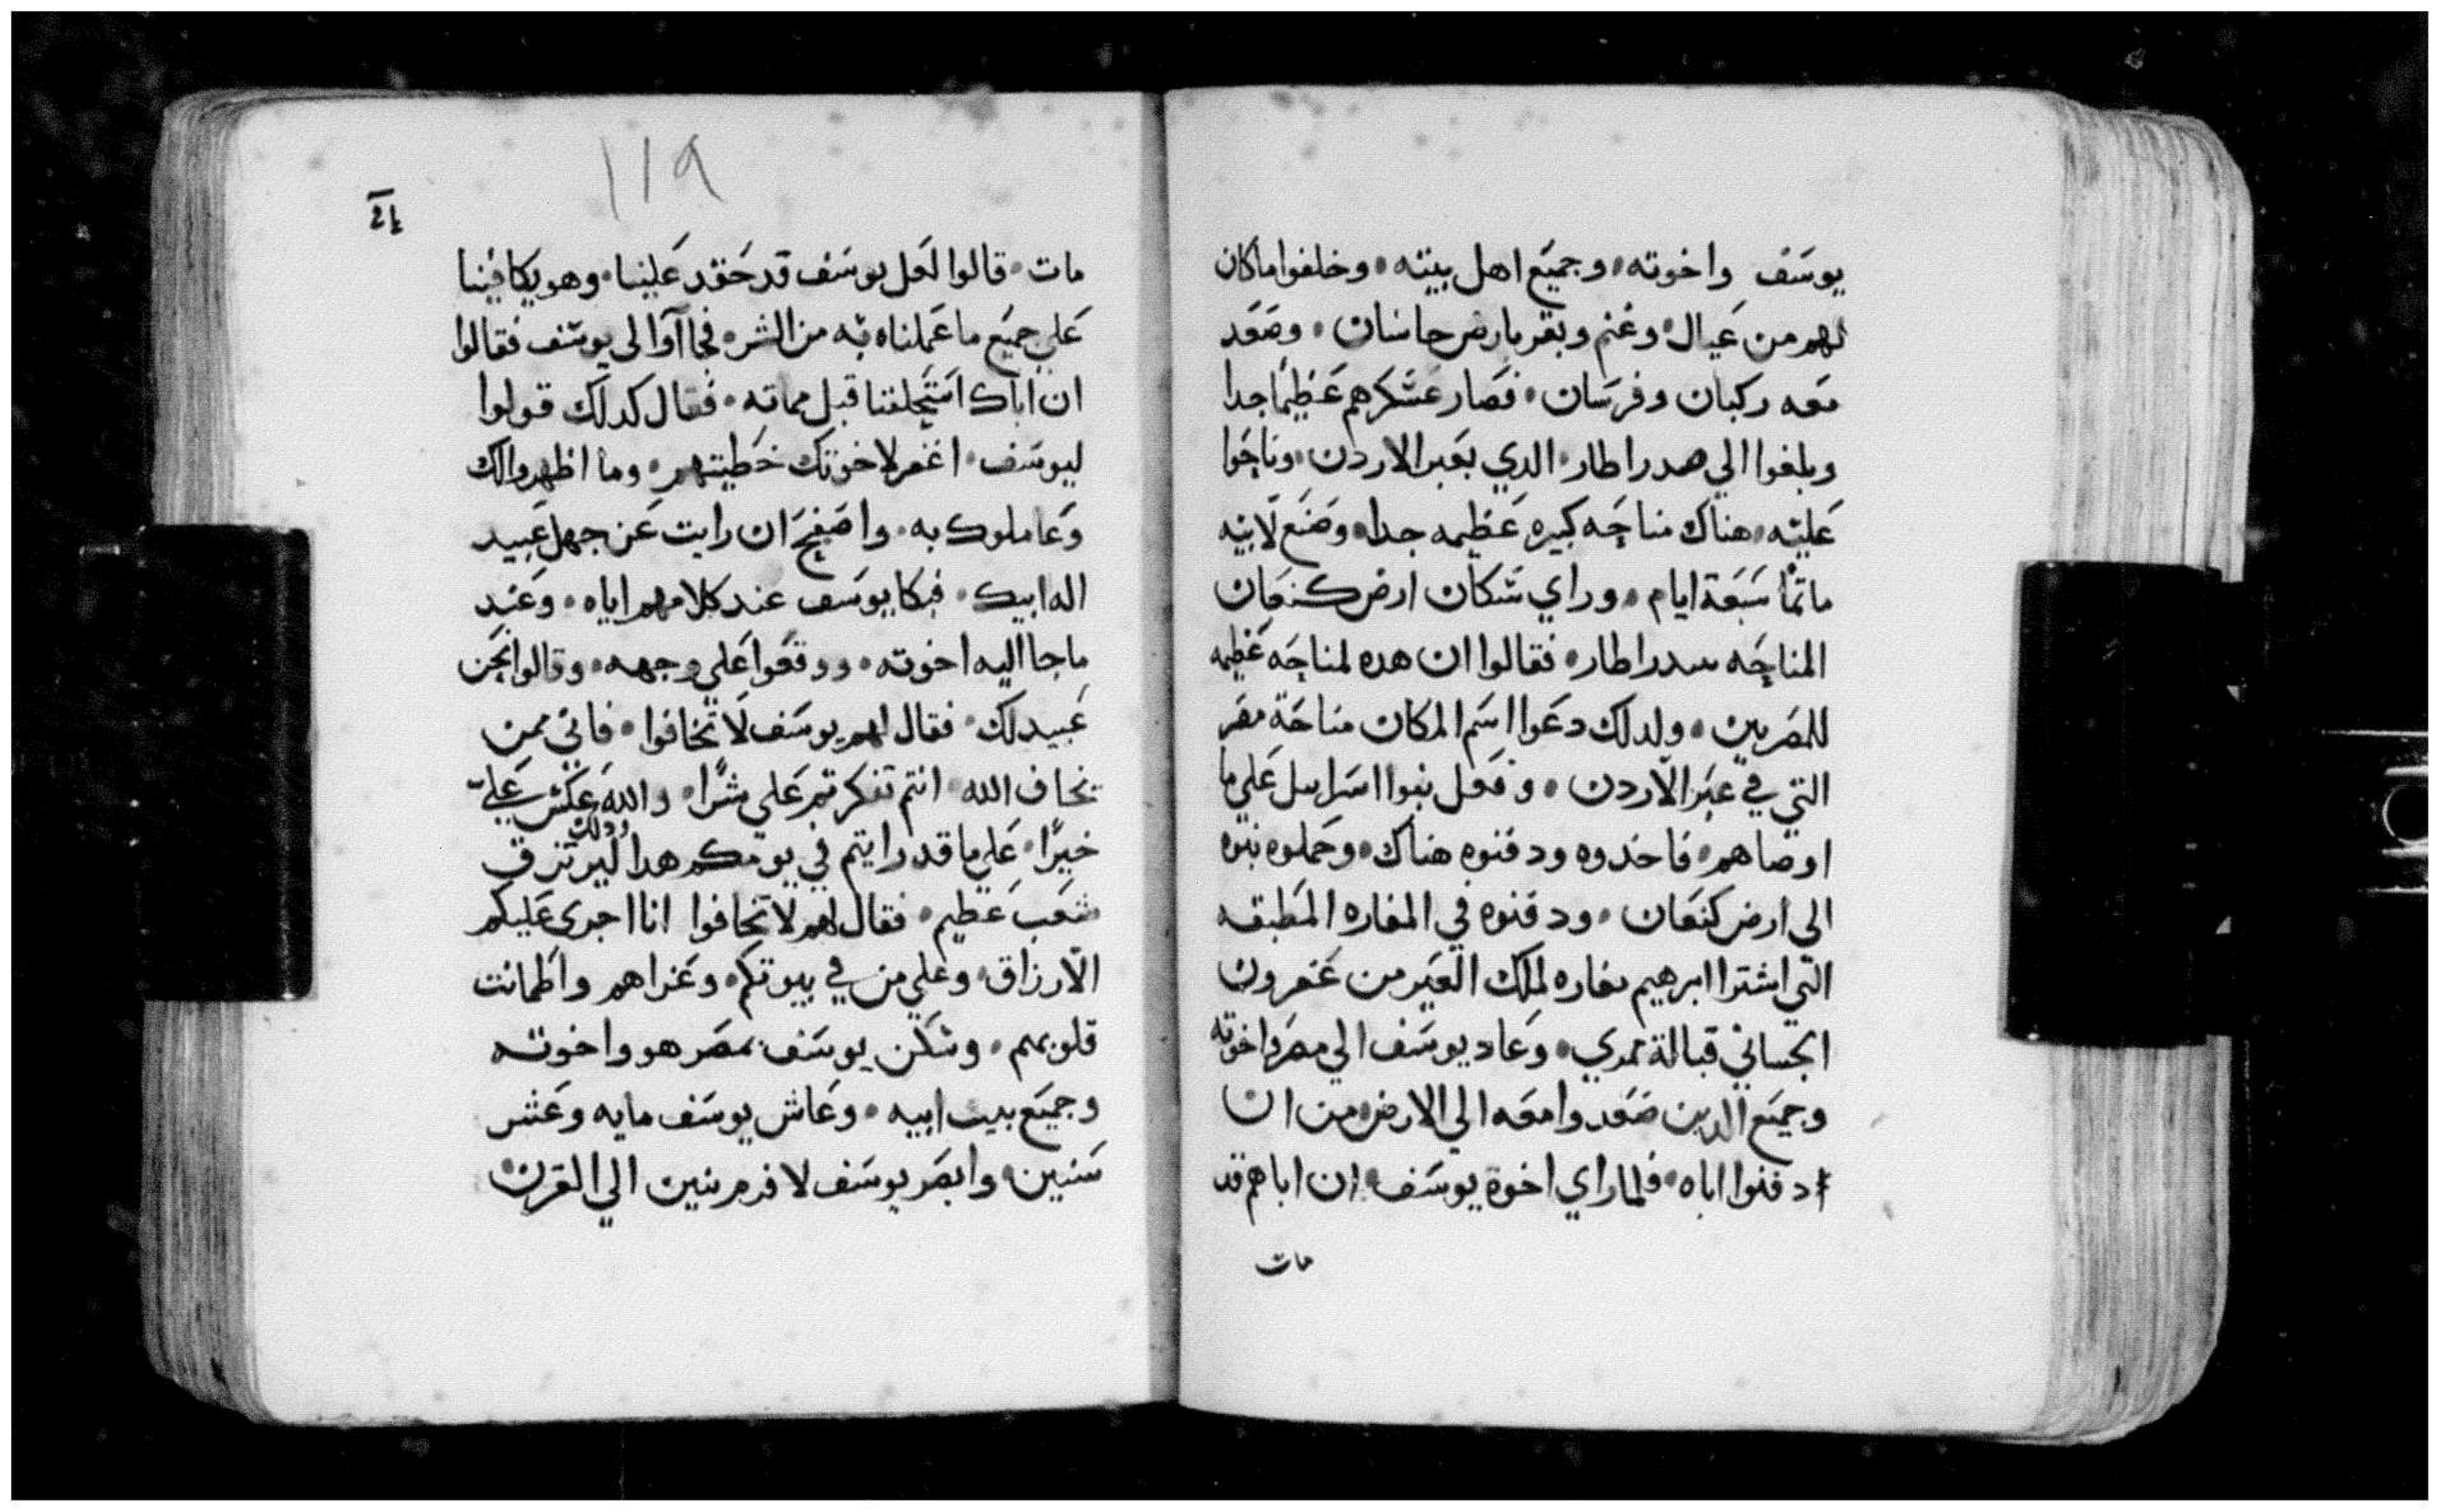 يوسف واخوته وجميع اهل بيته وخلفوا ماكان
لهم من عيال وغنم وبقر بارض جاسان وصعد
معه ركبان وفرسان فصار عسكرهم عظيما جدا
وبلغوا الي هدراطار الدي بعبر الاردن وناحوا
عليه هناك مناحه كبيره عظيمه جدا وصنع لابيه
ماتما سبعة ايام وراي سكان ارض كنعان
المناحه سدراطار فقالوا ان هده لمناحه عظيمه
للمصريين ولدلك دعوا اسم المكان مناحة مصر
التي في عبر الاردن وفعل بنوا اسراييل علي ما
اوصاهم فاخدوه ودفنوه هناك وحملوه بنوه
الي ارض كنعان ودفنوه في المغاره المطبقه
التي اشترا ابرهيم مغاره لملك القبر من عفرون
الجساني قبالة ممري وعاد يوسف الي مصر واخوته
وجميع الدين صعدوا معه الي الارض من ان
دفنوا اباه فلما راي اخوة يوسف ان اباهم قد
مات
119
مات قالوا لعل يوسف قد حقد علينا وهو يكافينا
علي جميع ما عملناه به من الشر فجاآوا الي يوسف فقالوا
ان اباك استحلفنا قبل مماته فقال كدلك قولوا
ليوسف اغفر لاخوتك خطيتهم وما اظهروا لك
وعاملوك به واصفح ان رايت عن جهل عبيد
اله ابيك فبكا يوسف عند كلامهم اياه وعند
ما جا اليه اخوته ووقعوا علي وجهه وقالوا نحن
عبيد لك فقال لهم يوسف لا تخافوا فاني ممن
يخاف الله انتم تفكرتم علي شرًا والله عكس علي
خيرًا علي ما قد رايتم في يومكم هدا ودلك ليرتزق
شعب عظيم فقال لهم لا تخافوا انا اجري عليكم
الارزاق وعلي من في بيوتكم وعزاهم واطمانت
قلوبهم وسكن يوسف بمصر هو واخوته
وجميع بيت ابيه وعاش يوسف مايه وعشر
سنين وابصر يوسف لافرم بنين الي القرن